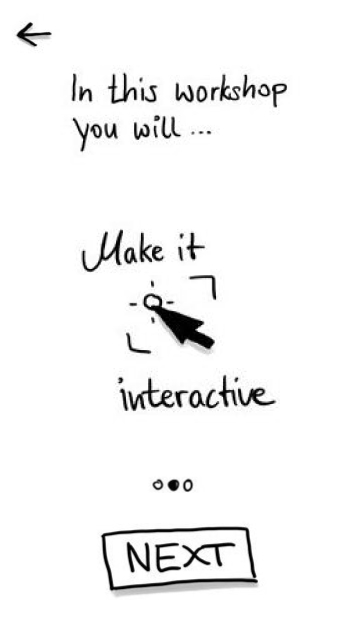 In this workshop
you will ...
Make it
interactive
NEXT